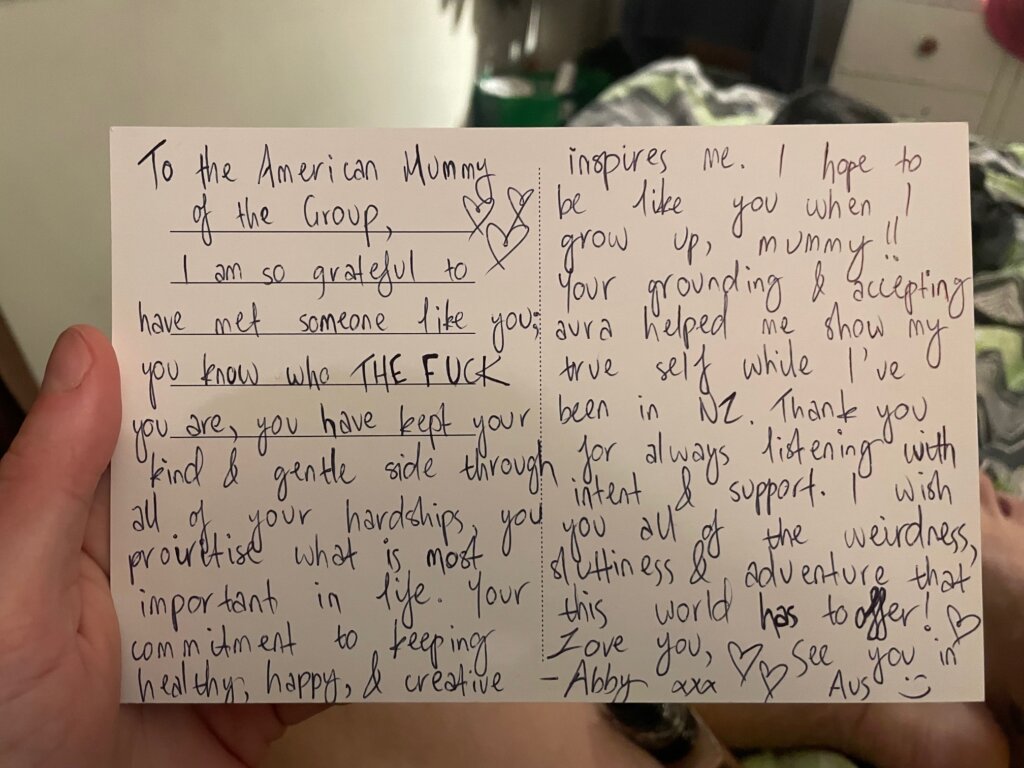 To the American Mummy
of the Group,
I am so grateful to
have met someone like you;
you know who THE FUCK
you are, you have kept your
kind & gentle side through
all of your hardships, you
proiretise what is most
important in life. Your
commitment to keeping
healthy, happy, & creative
inspires me. I hope to
be like you when I
grow up, mummy!!
Your grounding & accepting
aura helped me show my
true self while I've
been in NZ. Thank you
for always listening with
intent & support. I wish
you all of the weirdness,
sluttiness & adventure that
this world has to offer!
Love you,
- Abby xxx
See you in
Aus :)